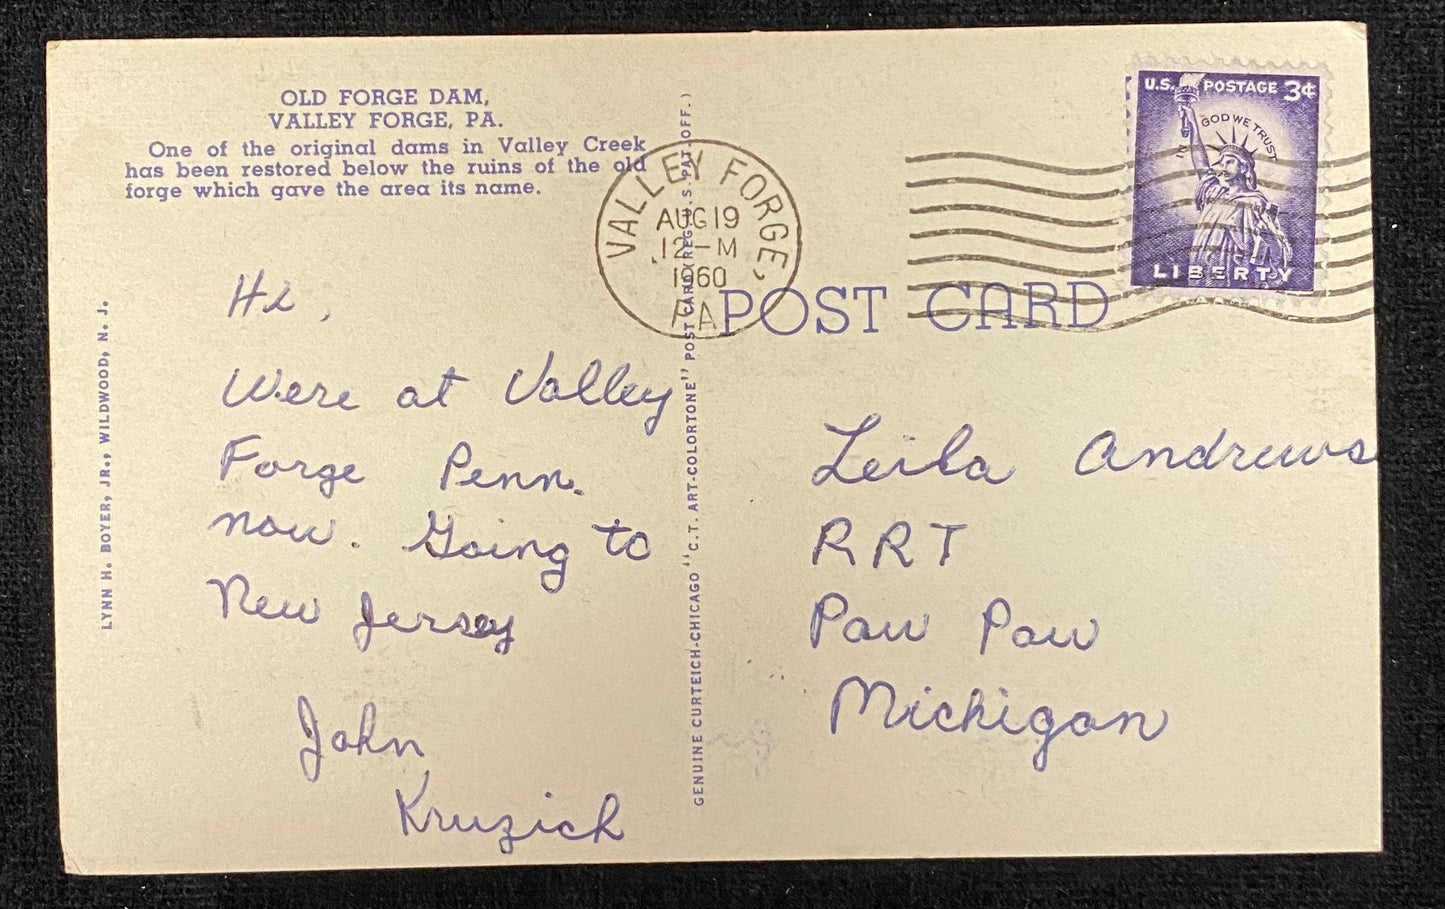 OLD FORGE DAM,
VALLEY FORGE, PA.
One of the original dams in Valley Creek
has been restored below the ruins of the old
forge which gave the area its name.
LYNN H. BOYER, JR., WILDWOOD, N. J.
Hi,
Were at Valley
Forge Penn.
now. Going to
New Jersey
John
Kruzich
GENUINE CURTEICH-CHICAGO "C.T. ART-COLORTONE" POST CARD (REG. U.S. PAT. OFF.)
VALLEY FORGE,
AUG 19
12-M
1960
PA
U.S. POSTAGE 3¢
IN GOD WE TRUST
LIBERTY
POST CARD
Leila Andrews
RRT
Paw Paw
Michigan